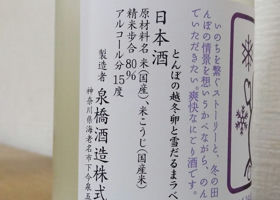 いのちを繋ぐストーリーと、冬の田
んぼの情景を想いうかべながら、のん
でいただきたい。爽快なにごり酒で
とんぼの越冬卵と雪だるまラベ
日本酒
原材料名 米(国産)、米こうじ(国産米)
精米歩合 80%
アルコール分 15度
製造者 泉橋酒造株式
神奈川県海老名市下今泉五